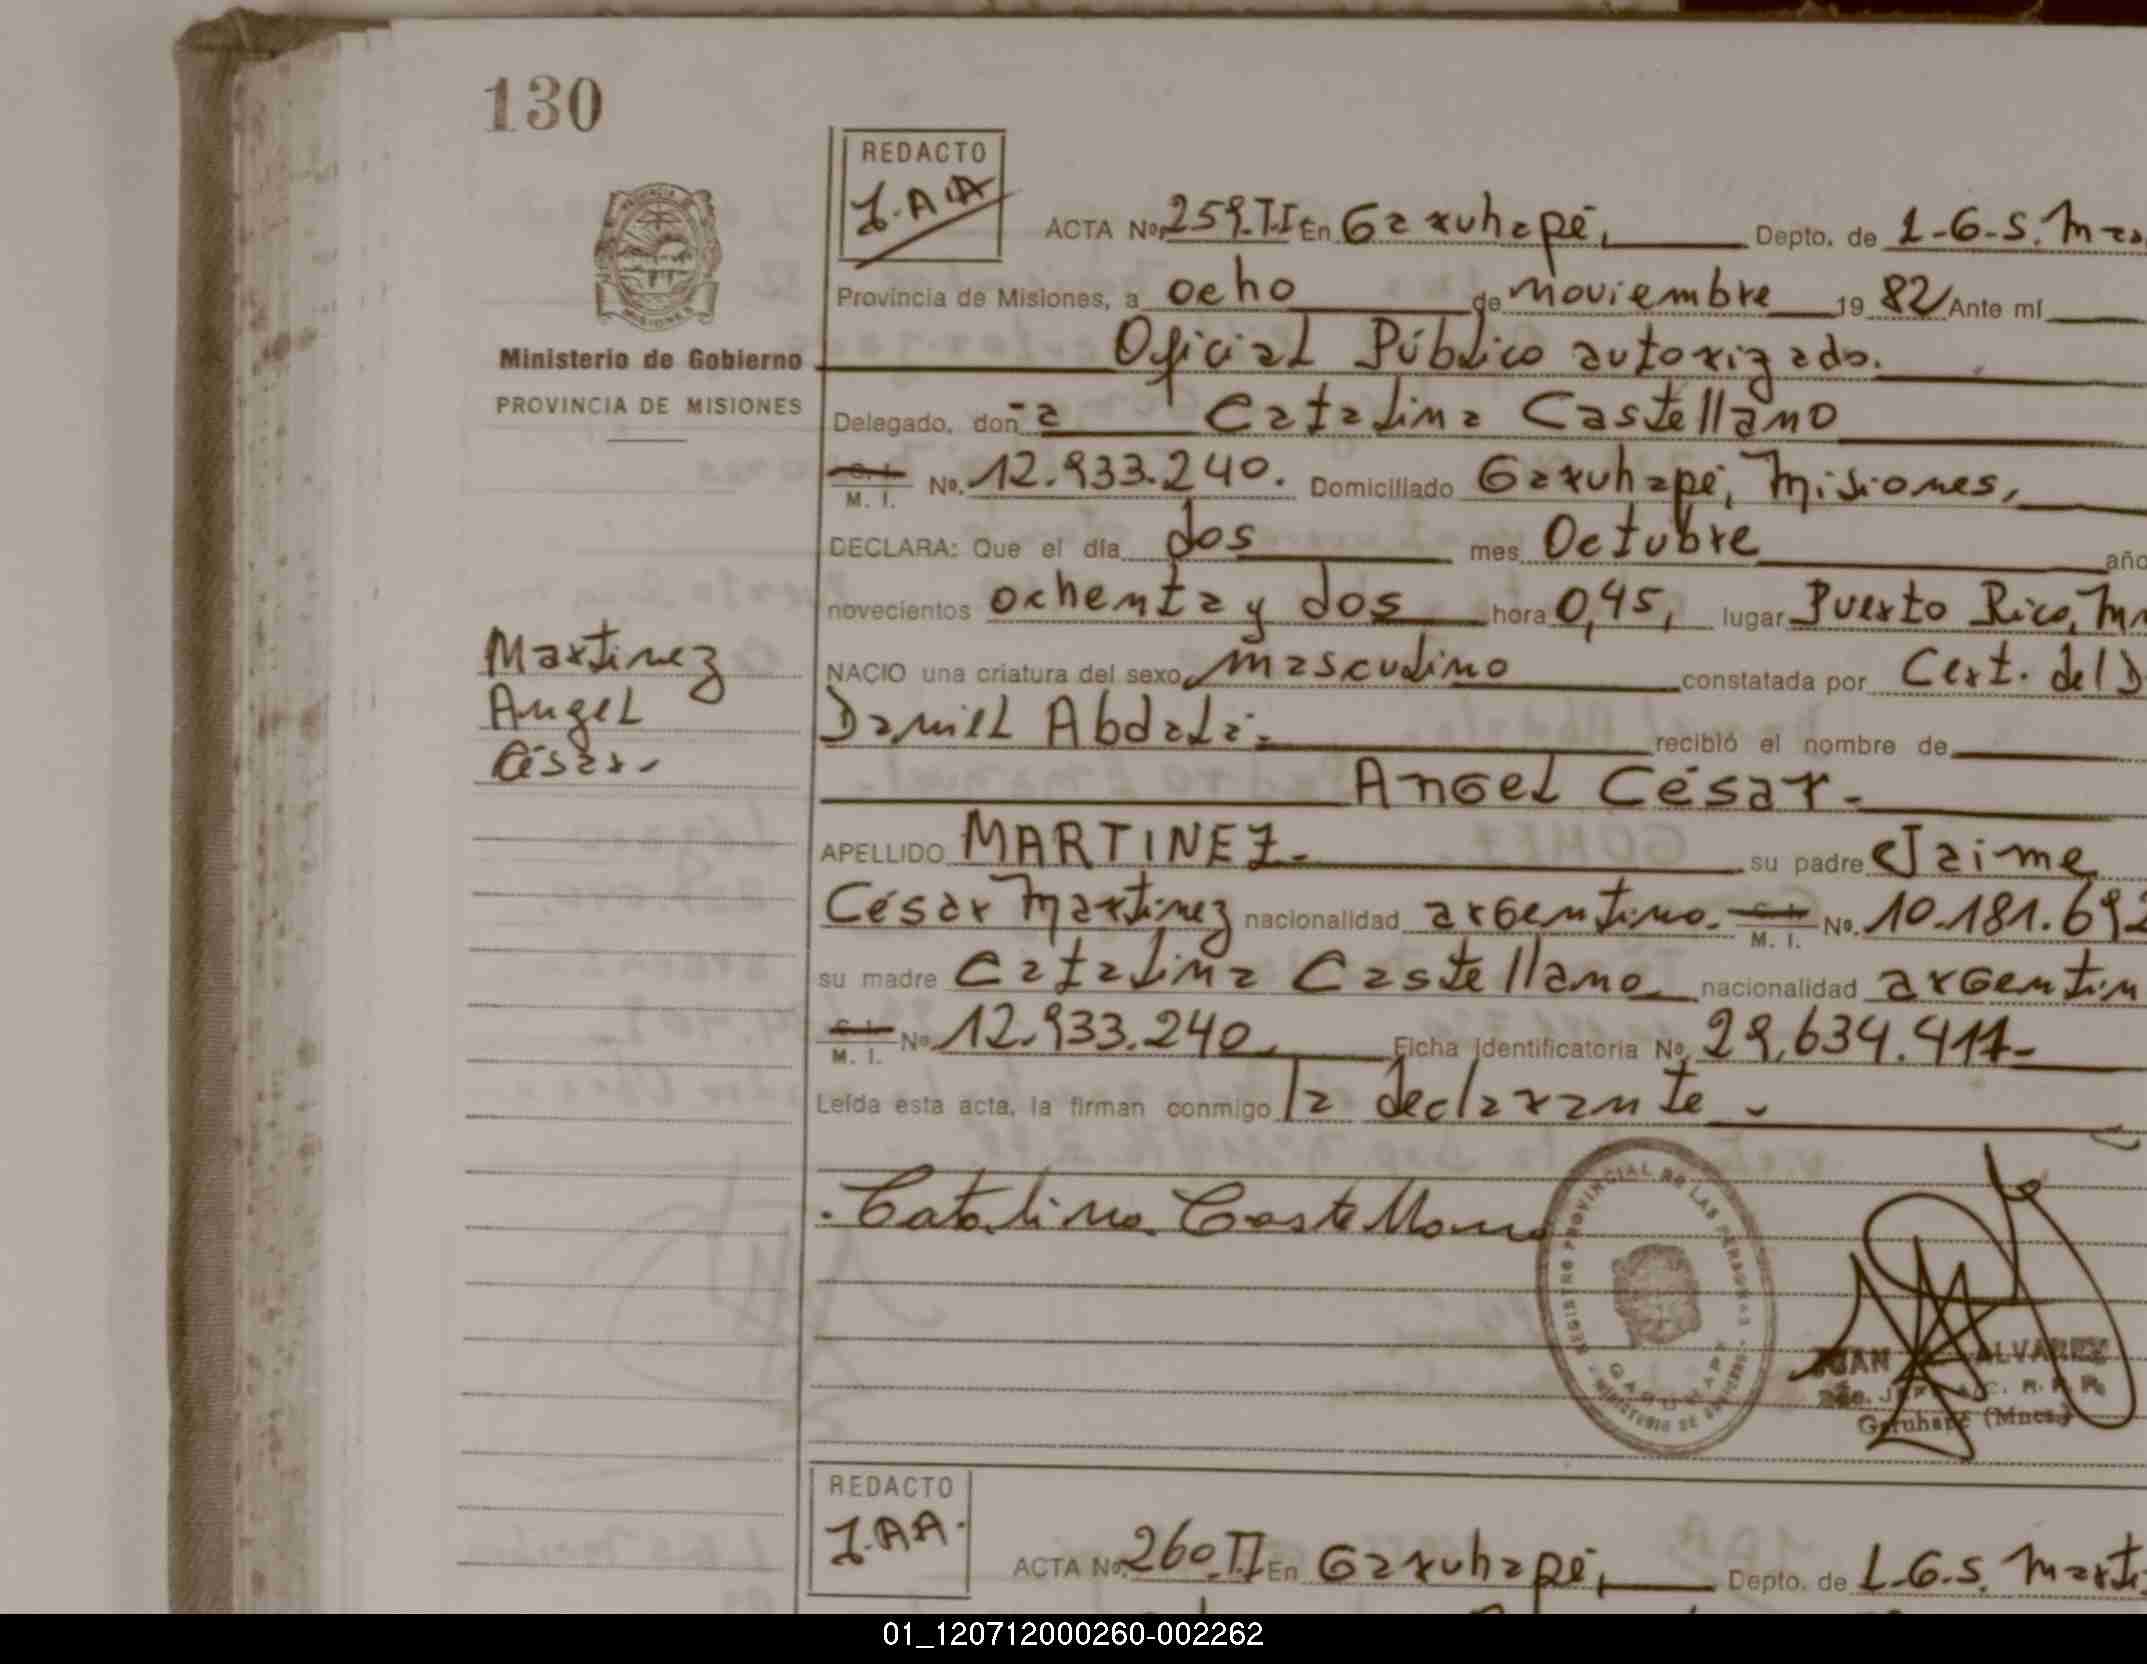 130
REDACTO
J.A.A
ACTA No. 259.T.I En Garuhapé, Depto. de L-G-S. Mar
PROVINCIA
MISIONES
Provincia de Misiones, a ocho de noviembre 19 82 Ante mí
Ministerio de Gobierno
Oficial Público autorizado.
PROVINCIA DE MISIONES
Delegado, don-a Catalina Castellano
C. I.
M. I. No. 12.933.240. Domiciliado Garuhapé, Misiones,
DECLARA: Que el día dos mes Octubre año
novecientos ochenta y dos hora 0,45, lugar Puerto Rico, M
Martinez
NACIO una criatura del sexo masculino constatada por Cert. del D
Angel
Daniel Abdala- recibió el nombre de
César.
Angel César-
APELLIDO MARTINEZ- su padre Jaime
César Martinez nacionalidad argentino. C. I. M. I. No. 10.181.692
su madre Catalina Castellano nacionalidad argentin
C. I. M. I. No. 12.933.240, Ficha Identificatoria No. 29.634.411-
Leída esta acta, la firman conmigo la declarante.
Catalina Castellano
REGISTRO PROVINCIAL DE LAS PERSONAS
GARUHAPE
MINISTERIO DE GOBIERNO
JUAN ALVAREZ
Garuhapé (Mnes.)
REDACTO
J.AA.
ACTA No. 260.TI En Garuhapé, Depto. de L-G-S. Marti
01_120712000260-002262